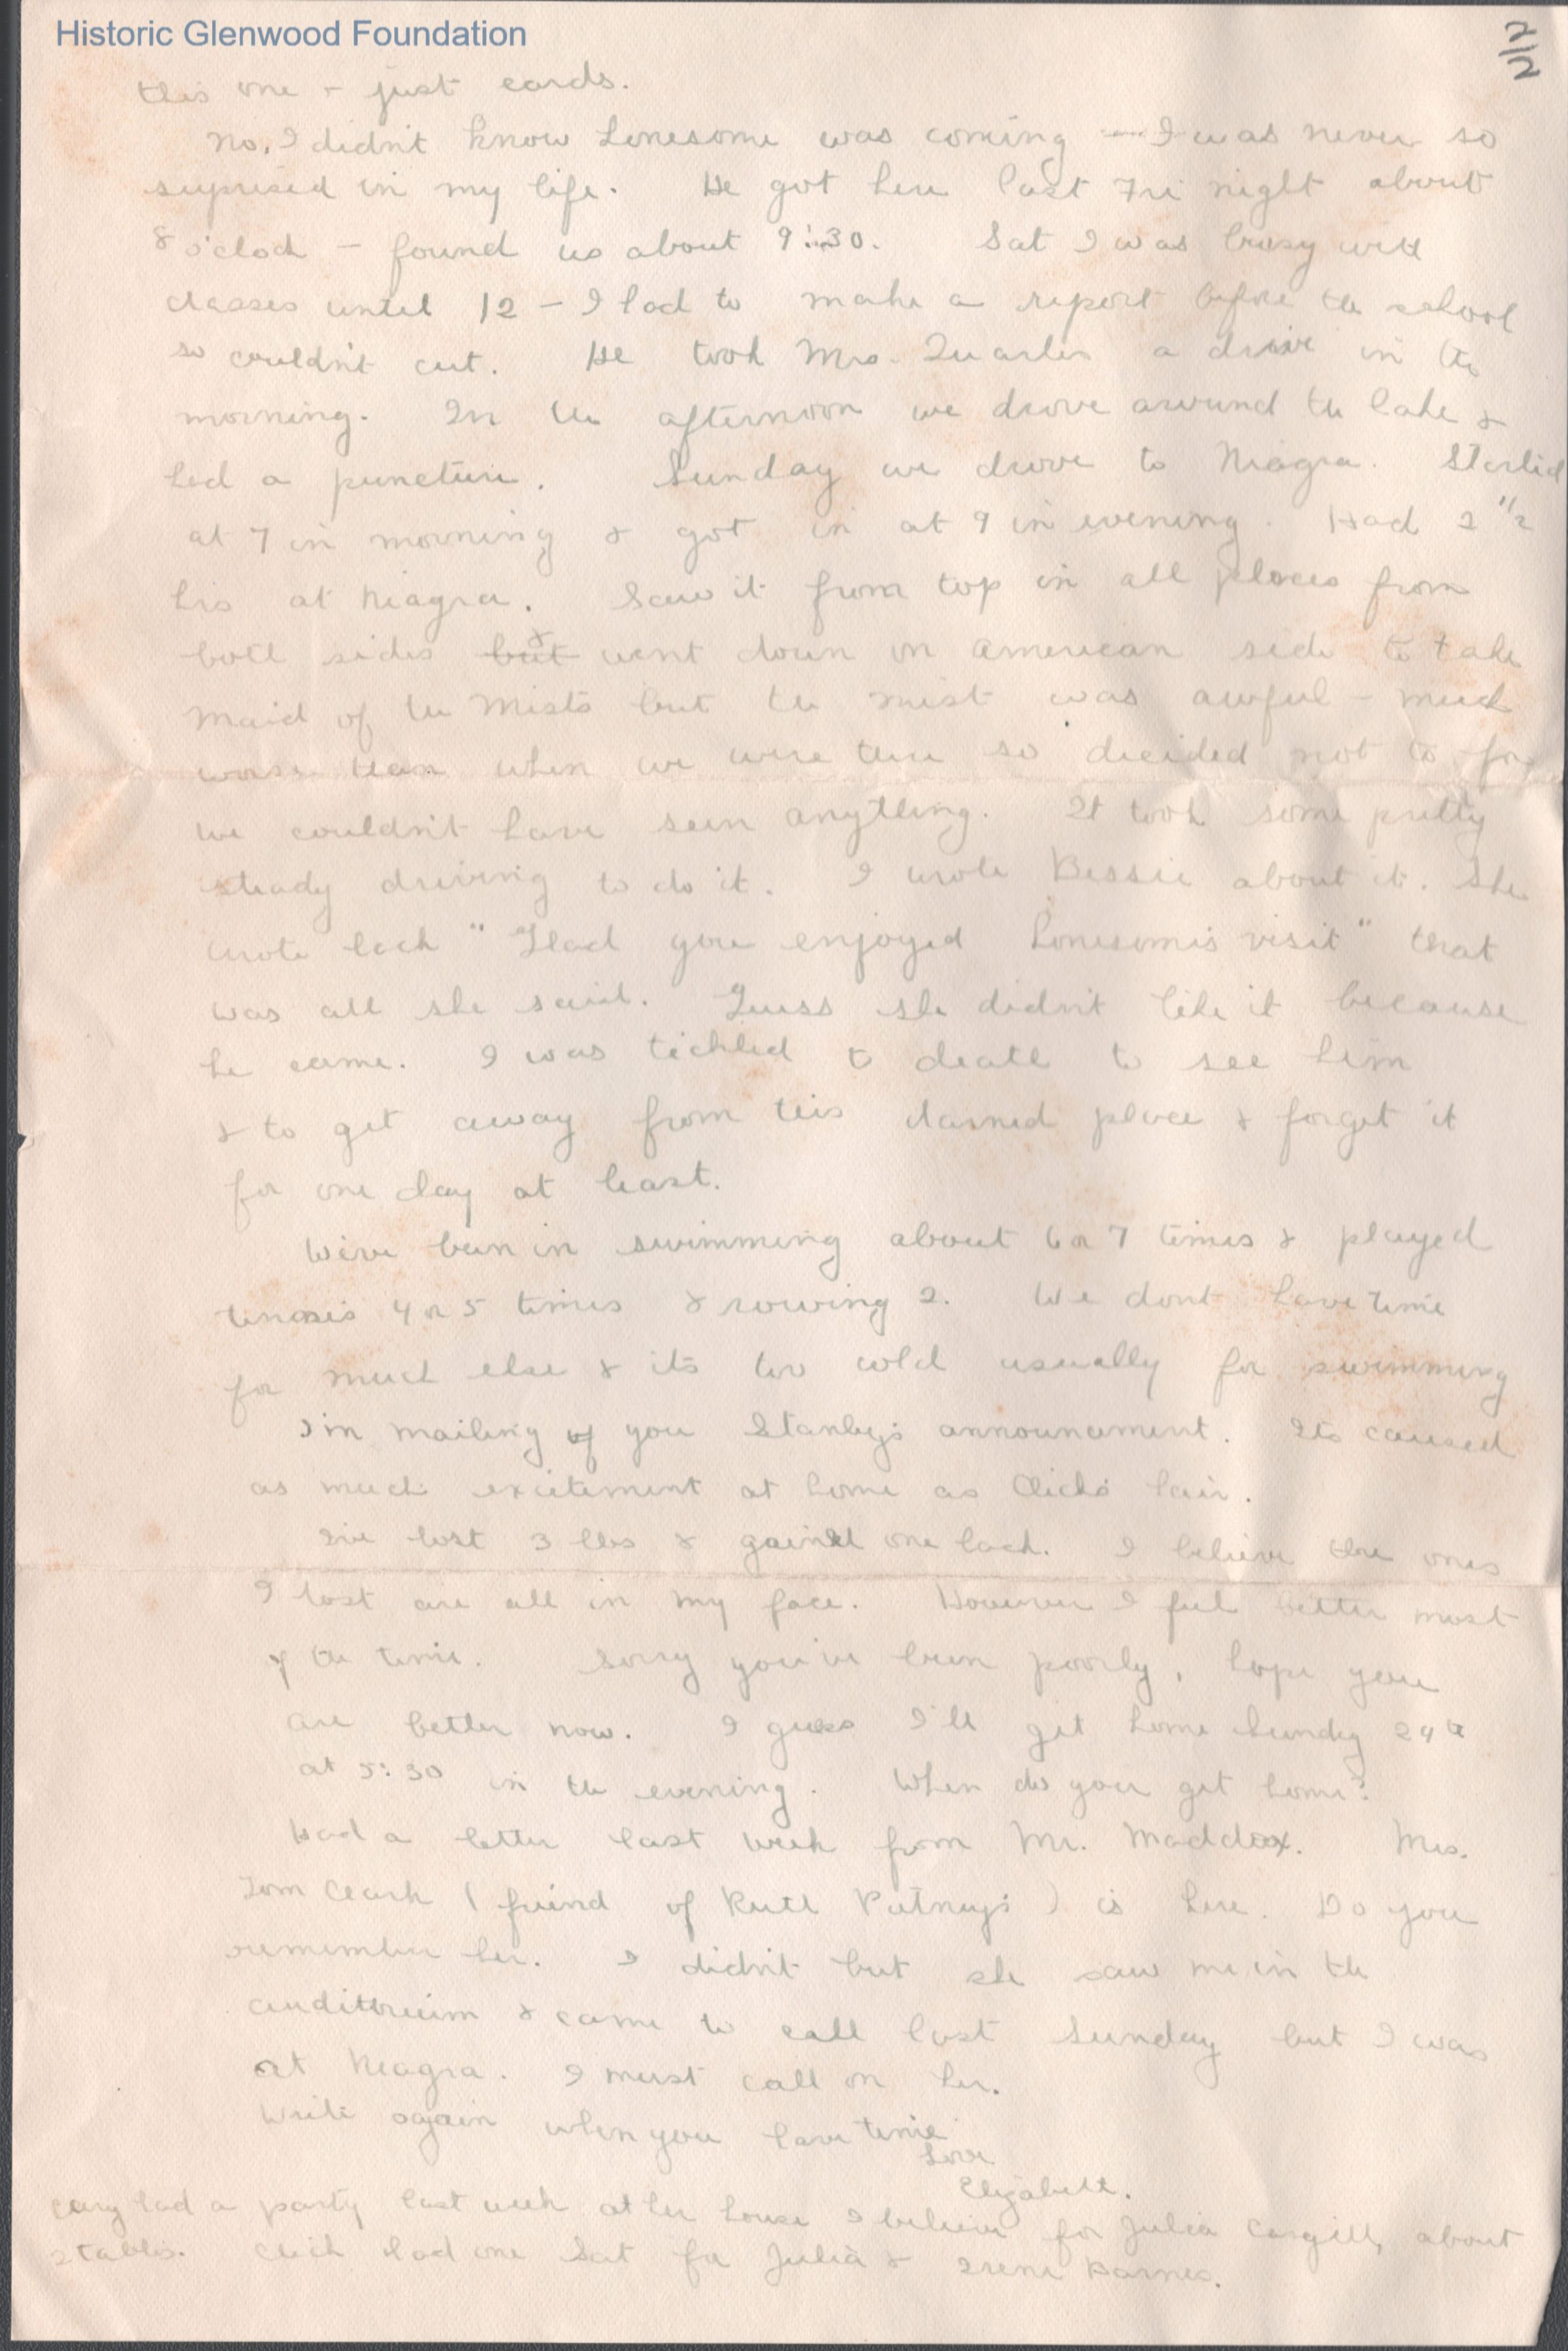 Historic Glenwood Foundation
2/2
this one - just cards.
No, I didn't know Lonesome was coming — I was never so
suprised in my life. He got here last Fri night about
8 o'clock - found us about 9:30. Sat I was busy with
classes until 12 - I had to make a report before the school
so couldn't cut. He took Mrs. Quarles a drive in the
morning. In the afternoon we drove around the lake &
had a puncture. Sunday we drove to Niagra. Started
at 7 in morning & got in at 9 in evening. Had 2 1/2
hrs at Niagra. Saw it from top in all places from
both sides but & went down on American side to take
Maid of the Mists but the mist was awful - much
worse than when we were there so decided not to for
we couldn't have seen anything. It took some pretty
steady driving to do it. I wrote Bessie about it. She
wrote back "Glad you enjoyed Lonesome's visit" that
was all she said. Guess she didn't like it because
he came. I was tickled to death to see him
& to get away from this darned place & forget it
for one day at least.
We've been in swimming about 6 or 7 times & played
tennis 4 or 5 times & rowing 2. We dont have time
for much else & its too cold usually for swimming
I'm mailing you Stanley's announcement. Its caused
as much excitement at home as Click's hair.
I've lost 3 lbs & gained one back. I believe the ones
I lost are all in my face. However I feel better most
of the time. Sorry you've been poorly, hope you
are better now. I guess I'll get home Sunday 24th
at 5:30 in the evening. When do you get home?
Had a letter last week from Mr. Maddox. Mrs.
Tom Clark (friend of Ruth Putney's) is here. Do you
remember her. I didn't but she saw me in the
auditorium & came to call last Sunday but I was
at Niagra. I must call on her.
Write again when you have time
Love
Elizabeth.
Cary had a party last week at her house I believe for Julia Cargill, about
2 tables. Click had one Sat for Julia & Irene Barnes.